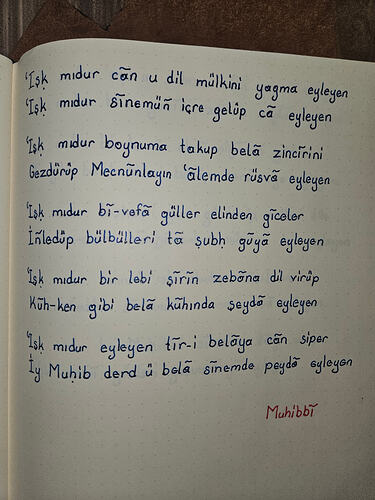 'Işḳ mıdur cān u dil mülkini yaġma eyleyen
'Işḳ mıdur sīnemüñ içre gelüp cā eyleyen
'Işḳ mıdur boynuma takup belā zincīrini
Gezdürüp Mecnūnlayın 'ālemde rüsvā eyleyen
'Işḳ mıdur bī-vefā güller elinden gīceler
İñledüp bülbülleri tā ṣubḥ gūyā eyleyen
'Işḳ mıdur bir lebi şīrīn zebāna dil virüp
Kūh-ken gibi belā kūhında şeydā eyleyen
'Işḳ mıdur eyleyen tīr-i belāya cān siper
İy Muḥib derd ü belā sīnemde peydā eyleyen
Muhibbī